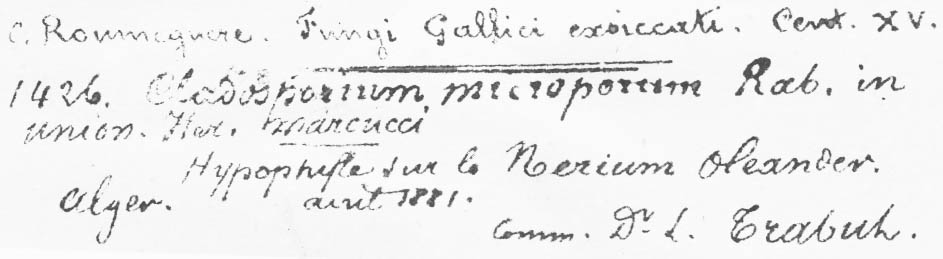 C. Roumeguere. Fungi Gallici exsiccati. Cent. XV.
1426. Cladosporium microporum Rab. in
union. Iter. Marcucci
Hypophylle sur le Nerium Oleander.
Alger. aout 1881.
Comm. Dr L. Trabut.